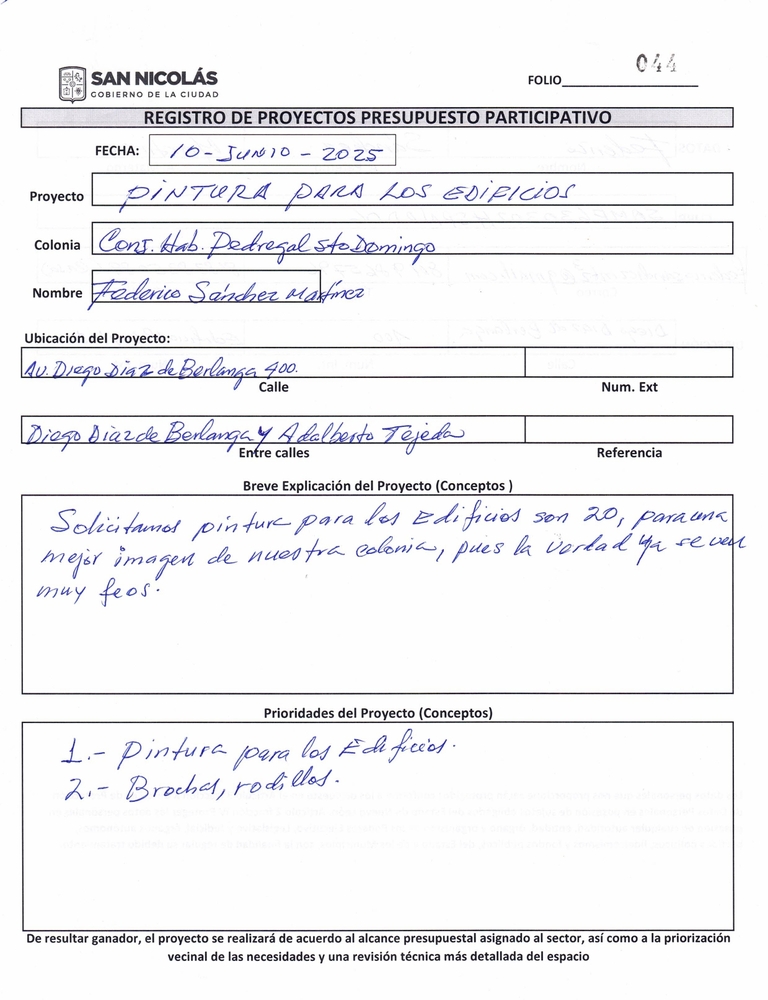 SAN NICOLÁS
GOBIERNO DE LA CIUDAD
FOLIO 044
REGISTRO DE PROYECTOS PRESUPUESTO PARTICIPATIVO
FECHA: 10-JUNIO-2025
Proyecto PINTURA PARA LOS EDIFICIOS
Colonia Conj. Hab. Pedregal Sto Domingo
Nombre Federico Sánchez Martínez
Ubicación del Proyecto:
Av. Diego Diaz de Berlanga 400.
Calle Num. Ext
Diego Diaz de Berlanga y Adalberto Tejeda
Entre calles Referencia
Breve Explicación del Proyecto (Conceptos )
Solicitamos pintura para los Edificios son 20, para una
mejor imagen de nuestra colonia, pues la verdad ya se ven
muy feos.
Prioridades del Proyecto (Conceptos)
1.- Pintura para los Edificios.
2.- Brochas, rodillos.
De resultar ganador, el proyecto se realizará de acuerdo al alcance presupuestal asignado al sector, así como a la priorización
vecinal de las necesidades y una revisión técnica más detallada del espacio